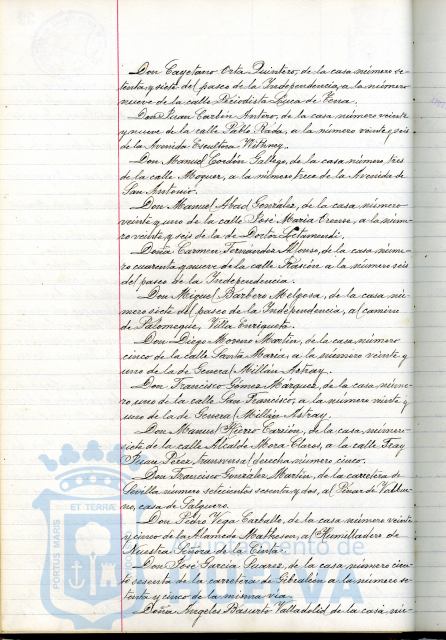 Don Cayetano Orta Quintero, de la casa número se-
tenta y siete del paseo de la Independencia, a la número
nueve de la calle Periodista Luca de Tena.
Don Juan Antero, de la casa número veinte
y nueve de la calle Pablo Rada, a la número veinte y seis
de la Avenida Escultora Withney.
Don Manuel Cordón Gallego, de la casa número tres
de la calle Moguer, a la número trece de la Avenida de
San Antonio.
Don Manuel Abad González, de la casa número
veinte y uno de la calle José María a la núme-
ro veinte y seis de la de Doctor Letamendi.
Doña Carmen Fernández Alonso, de la casa núme-
ro cuarenta y nueve de la calle Rascón a la número seis
del paseo de la Independencia.
Don Miguel Barbero Melgosa, de la casa nú-
mero siete del paseo de la Independencia, al camino
de Palomeque, Villa Enriqueta.
Don Diego Moreno Martín, de la casa número
cinco de la calle Santa María, a la número veinte y
uno de la de General Millán Astray.
Don Francisco Gómez Márquez, de la casa núme-
ro uno de la calle San Francisco, a la número vieste y
uno de la de General Millán Astray.
Don Manuel Carrión, de la casa número
siete de la calle Alcalde Mora Claros, a la calle Fray
Juan Pérez, transversal derecha número cinco.
Don Francisco González Martín, de la carretera de
Sevilla número setecientos sesenta y dos, al Pinar de
no, casa de Salguero.
Don Pedro Vega Carballo, de la casa número veinte
y cinco de la Alameda Matheson, al Humilladero de
Nuestra Señora de la Cinta.
Don José García Suares, de la casa número cien-
to sesenta de la carretera de Gibraleón a la número se-
tenta y cinco de la misma vía.
Doña Angeles Basurto Valladolid, de la casa nú-
PORTUS MARIS
ET TERRÆ